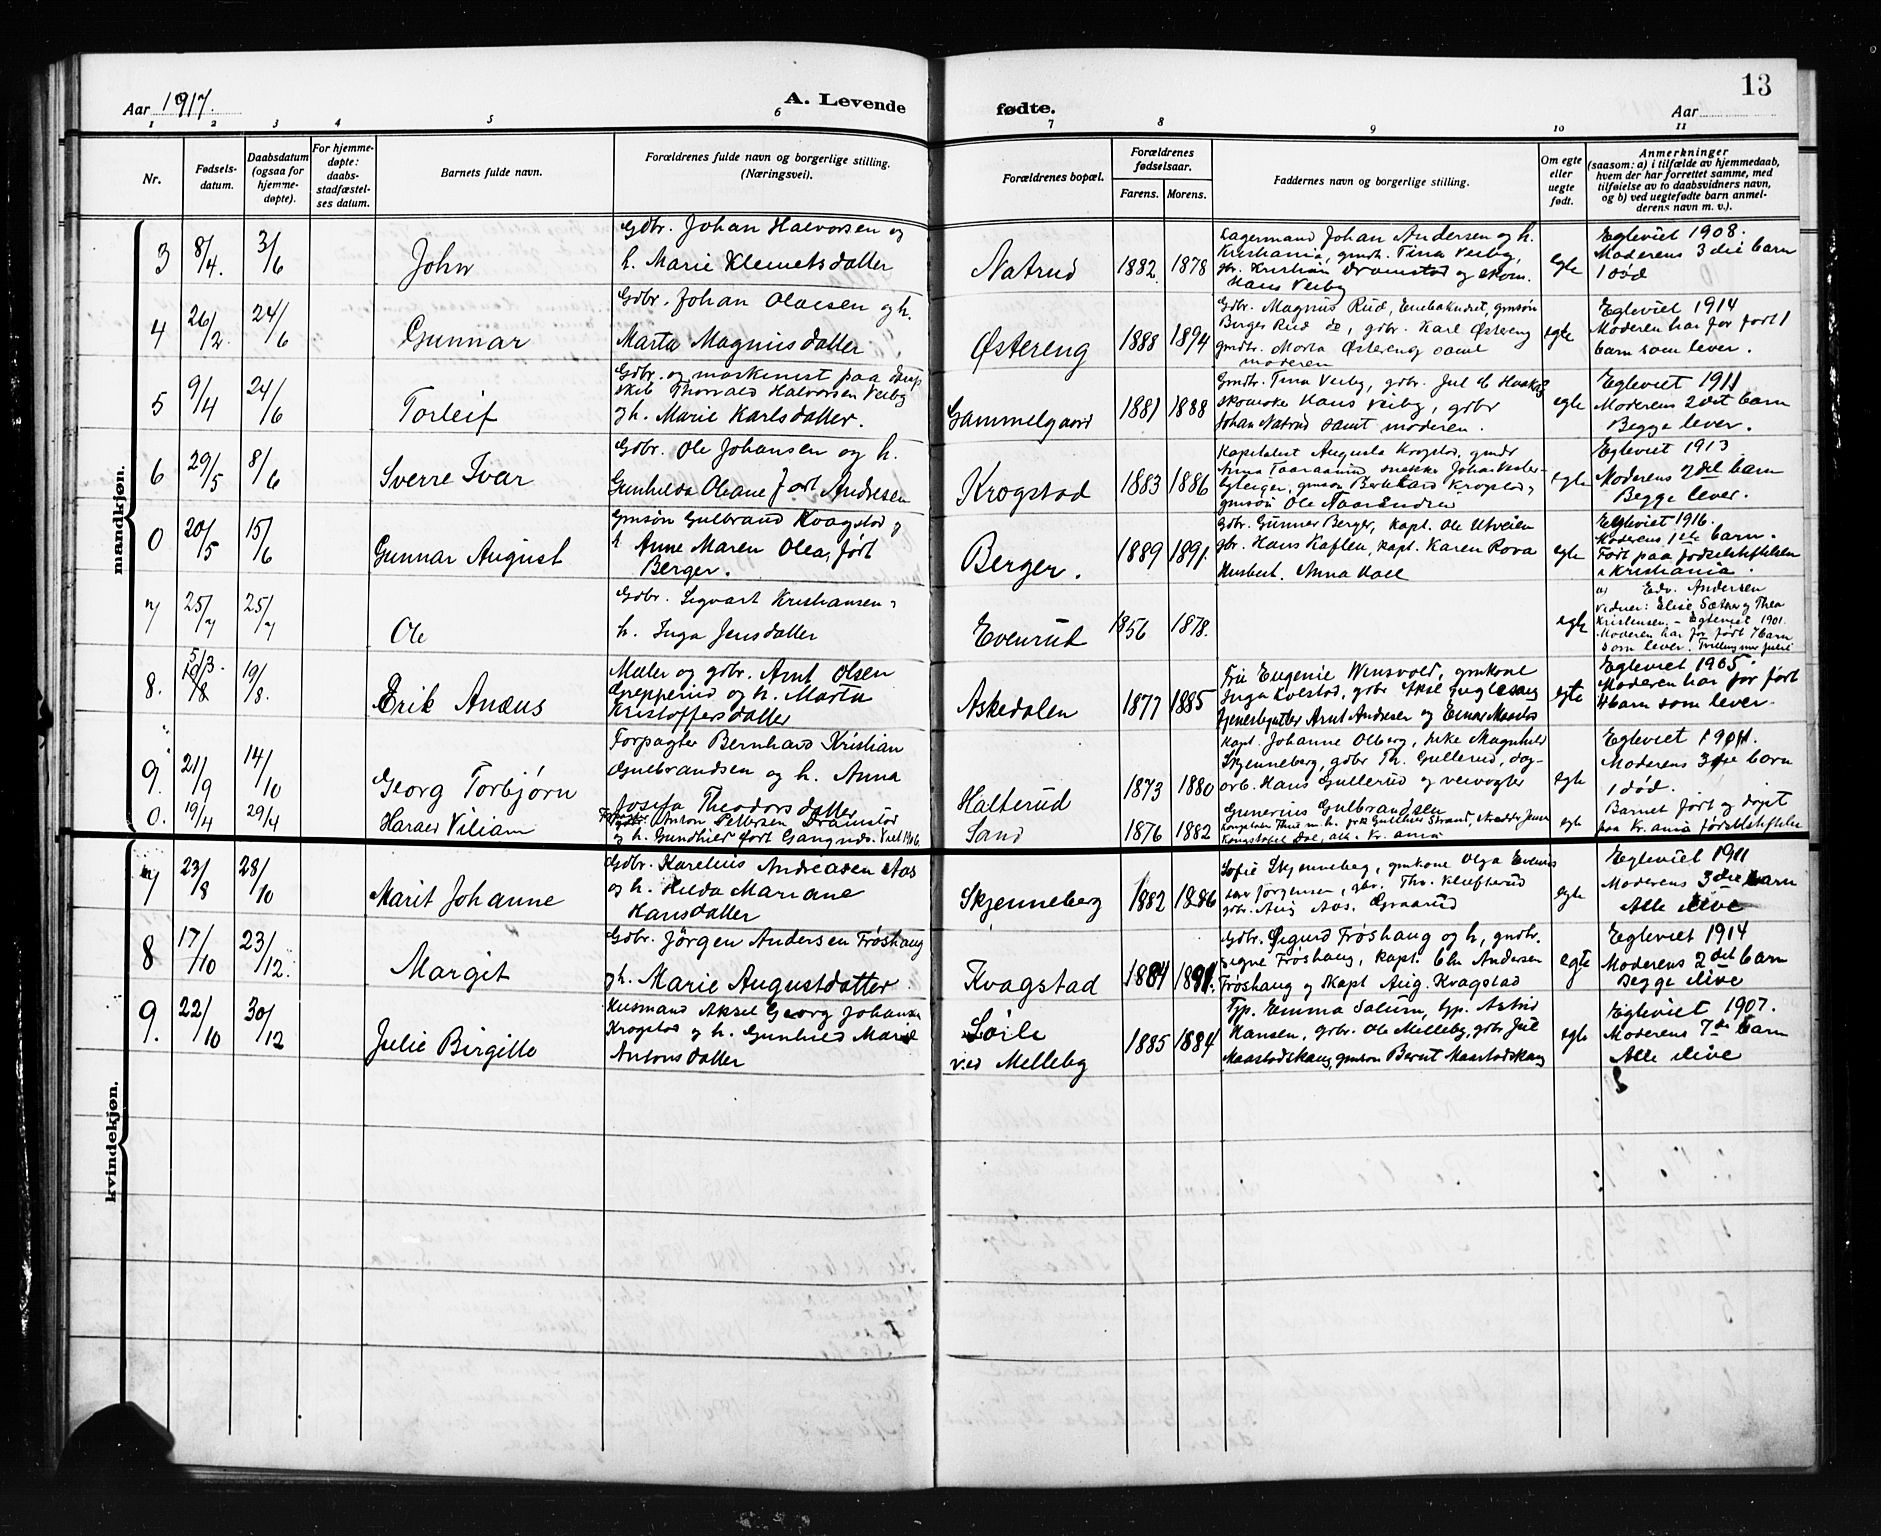 13
Aar 1917. A. Levende fødte. Aar
1 2 3 4 5 6 7 8 9 10 11
Nr.
Fødsels-
datum.
Daabsdatum
(ogsaa for
hjemme-
døpte).
For hjemme-
døpte:
daabs-
stadfæstel-
ses datum.
Barnets fulde navn.
Forældrenes fulde navn og borgerlige stilling.
(Næringsvei).
Forældrenes bopæl.
Forældrenes
fødselsaar.
Farens. Morens.
Faddernes navn og borgerlige stilling.
Om egte
eller
uegte
født.
Anmerkninger
(saasom: a) i tilfælde av hjemmedaab,
hvem der har forrettet samme, med
tilføielse av to daabsvidners navn,
og b) ved uegtefødte barn anmel-
derens navn m. v.).
mandkjøn.
3 8/4. 3/6 John
Gdbr. Johan Halvorsen og
h. Marie Klemetsdatter
Natrud 1882 1878
Lagermand Johan Andersen og h.
Kristiania, gmdtr. Tina Veiby,
gbr. Kristian Dramstad og skom.
Hans Veiby
egte
Egteviet 1908.
Moderens 3die barn
1 død
4 26/2. 24/6 Gunnar
Gdbr. Johan Olaisen og h.
Marta Magnusdatter
Østereng 1888 1894
Gdbr. Magnus Rud, Enebakneset, gmsøn
Birger Rud do, gdbr. Karl Østereng
gmdtr. Marta Østereng samt
moderen
egte
Egteviet 1914
Moderen har før født 1
barn som lever.
5 9/4 24/6 Torleif
Gdbr. og maskinist paa damp
skib Thorvald Halvorsen Veiby
og h. Marie Karlsdatter.
Gammelgaard 1881 1888
Gmdtr. Tina Veiby, gdbr. Jul C
skomake Hans Veiby, gdbr
Johan Natrud samt moderen.
egte
Egteviet 1911
Moderens 2det barn
Begge lever.
6 29/5 8/6 Sverre Ivar
Gdbr. Ole Johansen og h.
Gunhilda Oleane født Andresen
Krogstad 1883 1886
Kapitalist Augusta Krogstad, gmdr
gmsøn Ole
egte
Egteviet 1913
Moderens 2det barn
Begge lever.
0 20/5 15/6 Gunnar August
Gmsøn Gulbrand Kvagstad og
h Anne Maren Olea, født
Berger.
Berger. 1889 1891.
Gdbr. Gunner Berger, kapt. Ole Utveien
gbr. Hans Kaflen, kapt. Karen Rova
Husbest. Anna Hall
egte
Egteviet 1916.
Moderens 1ste barn.
Født paa fødselsstiftelsen
i Kristiania.
7 25/7 25/7 Ole
Gdbr. Sigvart Kristiansen og
h. Inga Jensdatter
Evenrud 1856 1878.
egte
Edv. Andersen
Vidner: Elise Sæther og Thea
Kristensen. - Egteviet 1901.
Moderen har før født 7 barn
som lever.
8. 19/8 19/8. Erik Andeus
Maler og gdbr. Arnt Olsen
Grepperud og h. Marta
Kristoffersdatter
Askedalen 1877 1885
Fru Eugenie Wensvold, gmkone
Inga Kvestad, gdbr Aksel
Arnt Andresen og Einar
egte
Egteviet 1905.
Moderen har før født
4 barn som lever.
9. 21/9 14/10 Georg Torbjørn
Forpagter Bernhard Kristian
Gulbrandsen og h. Anna
Josefa Theodorsdatter
Halterud 1873 1880
Kapt. Johanne Olberg, pike Magnhild
Skjenneberg, gdbr Th. Gullerud, dag-
arb. Hans Gullerud og veivogter
Gunerius Gulbrandsen
egte
Egteviet 1901.
Moderens 3die barn
1 død.
0. 19/4 29/4 Harald Viliam
Anton Pettersen Dramstad
og h. Gundhild født Gangnæs. Viet 1906.
Sand 1876 1882
egte
Barnet født og døpt
paa Kr.ania fødselstiftelse
kvindekjøn.
7 23/8 28/10 Marit Johanne
Gdbr. Karelius Andreasen Aas
og h. Hilda Mariane
Hansdatter
Skjenneberg 1882 1886
Sofie Skjenneberg, gmkone Olga Evenrud
Jørgensen, gbr. Thv. Kluftrud
gdbr. Aug Aas. Graarud
egte
Egteviet 1911
Moderens 3die barn
Alle ilive
8 17/10 23/12. Margit
Gdbr. Jørgen Andersen Frøshaug
og h. Marie Augustdatter
Kvagstad 1884 1891.
Gdbr. Sigurd Frøshaug og h, gmdtr.
Signe Frøshaug, kapt. Chr Andersen
Frøshaug og Kapt Aug. Kvagstad
egte
Egteviet 1914
Moderens 2det barn
Begge ilive
9. 22/10 30/12 Julie Birgitte
Husmand Aksel Georg Johansen
Krogstad og h. Gunhild Marie
Antonsdatter
Løile
ved Melleby 1885 1884
Typ. Emma Salum, typ. Astrid
Hansen, gdbr. Ole Melleby, gdbr Jul
Maastadskaug, gmsøn Bernt Maastadskaug
egte
Egteviet 1907.
Moderens 7de barn
Alle ilive